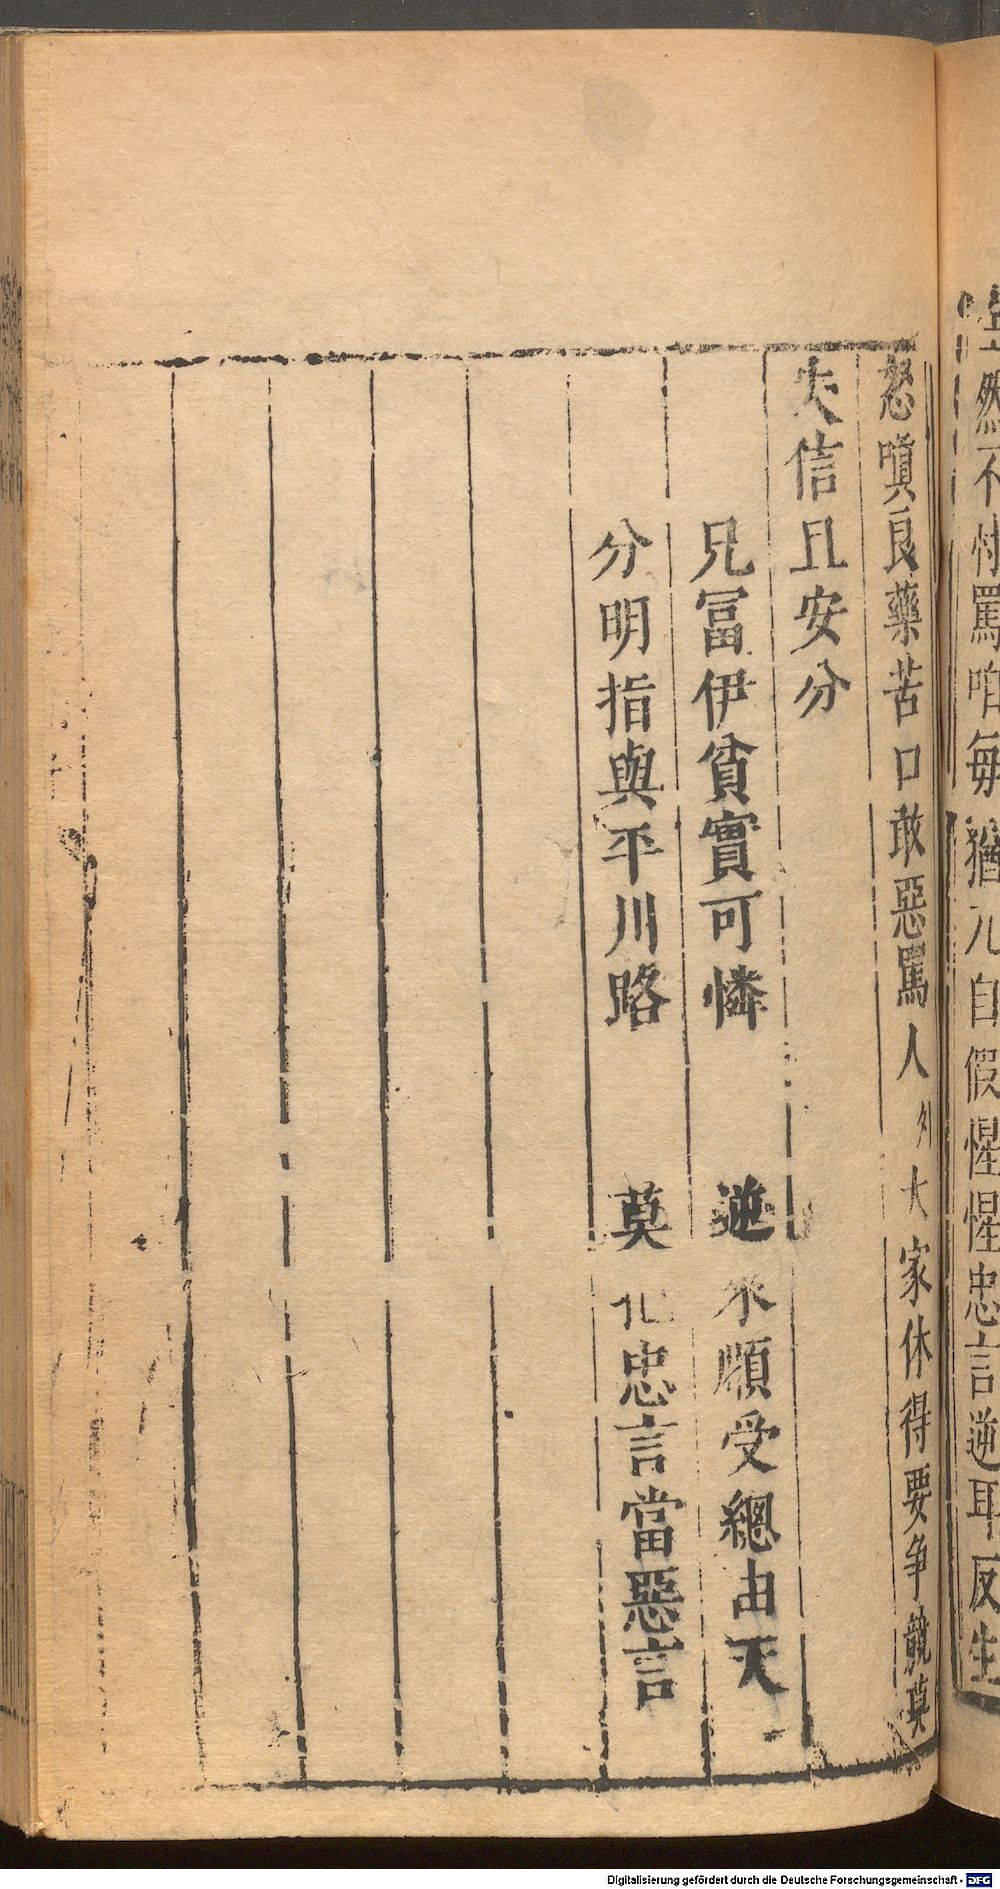 然不忖罵咱每猶兀自假惺惺忠言逆耳反生
怒嗔良藥苦口敢惡罵人外大家休得要争競莫
失信且安分
兄冨伊貧實可憐 逆來順受總由天
分明指與平川路 莫化忠言當惡言
Digitalisierung gefördert durch die Deutsche Forschungsgemeinschaft - DFG